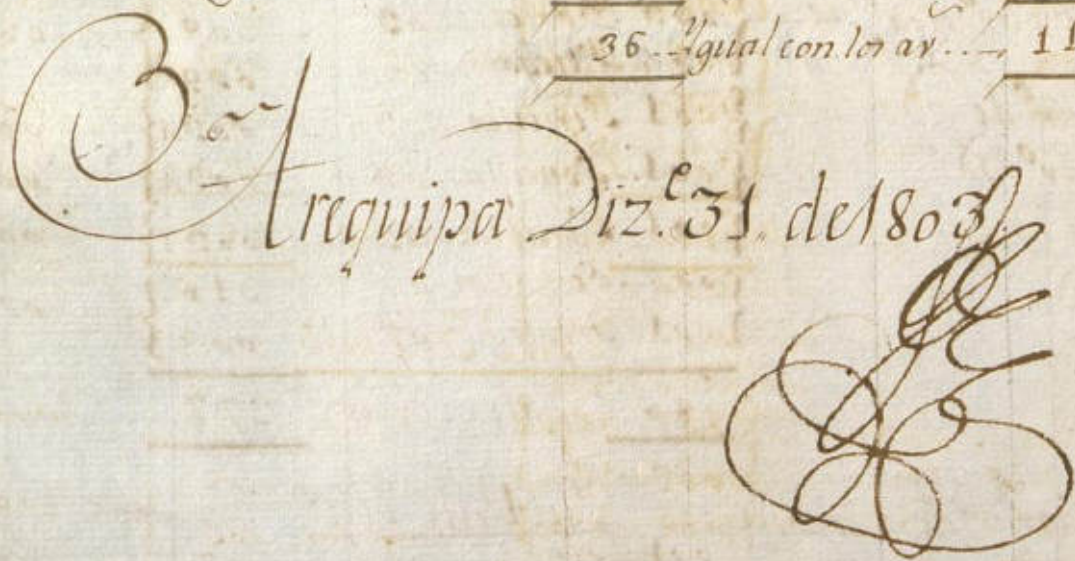 36.. Ygual con los ar̃... 11
Arequipa Diz.e 31. de 1803